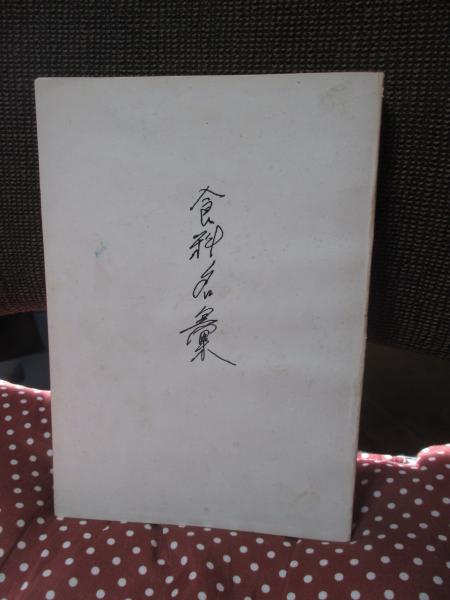 食料名彙